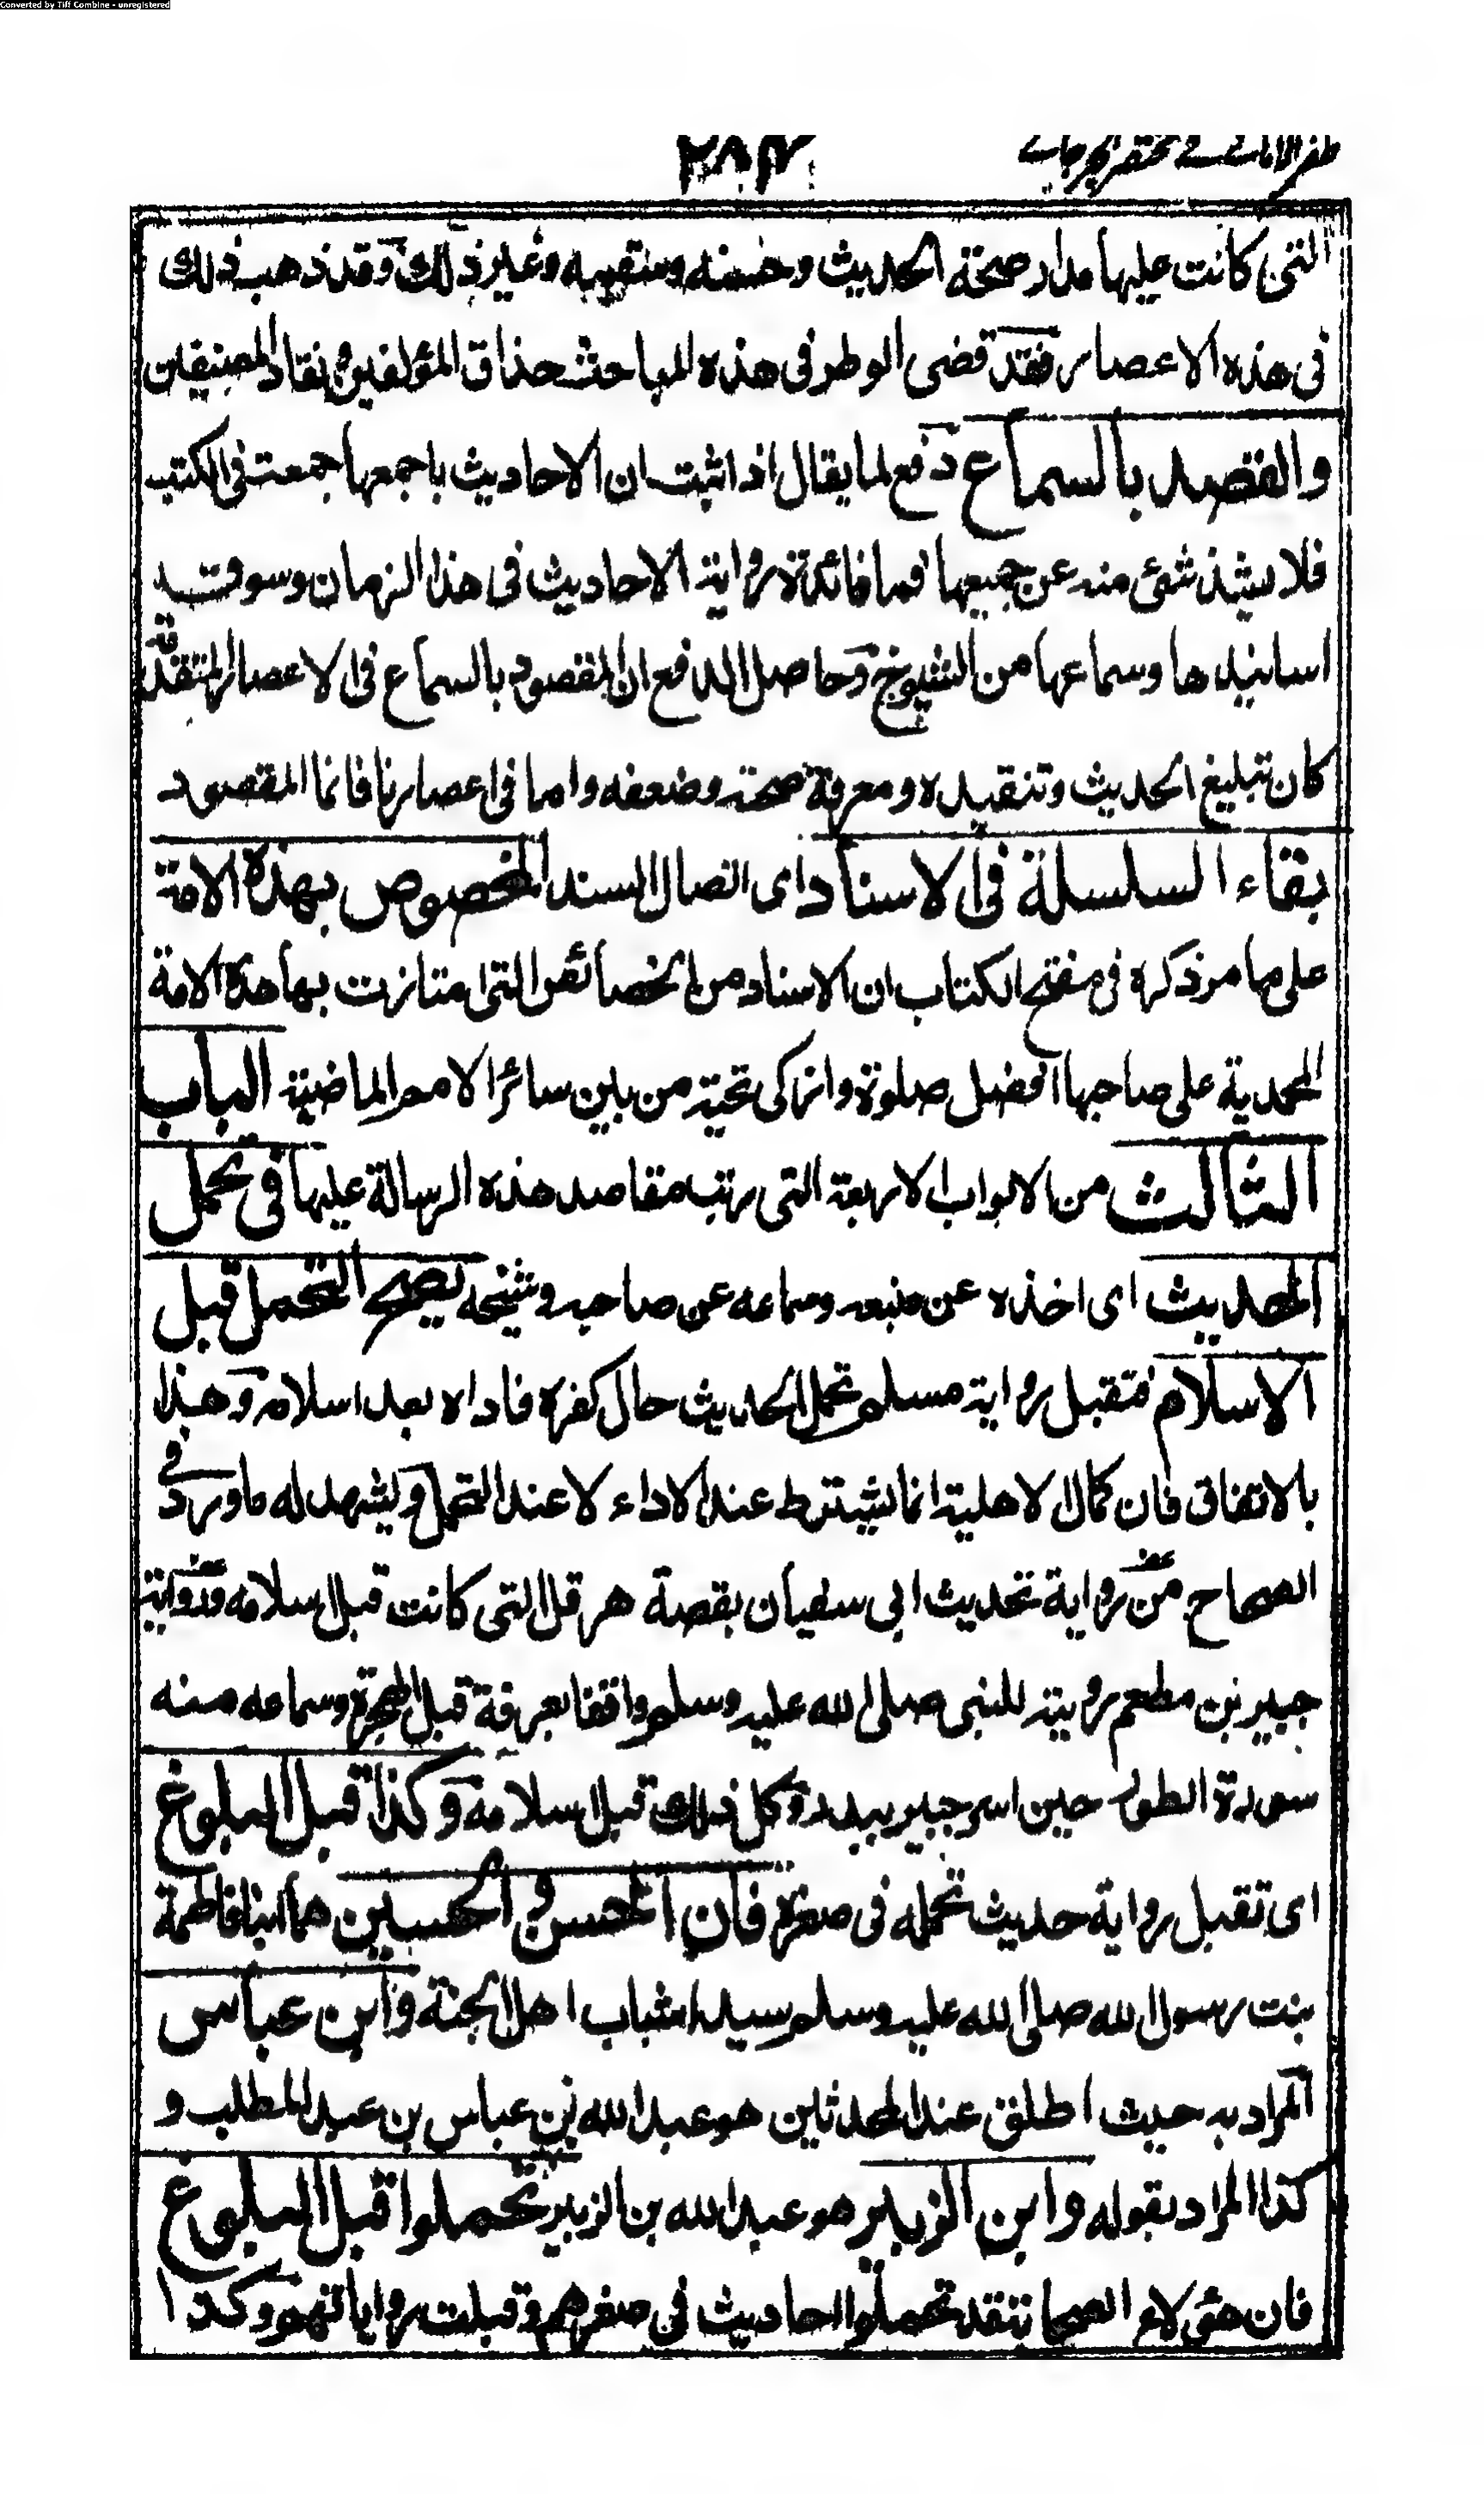 Converted by Tiff Combine - unregistered
ظفر الاماني في مختصر الجرجاني
٢٨٤
التي كانت عليها مدار صحة الحديث وحسنه وسقيمه وغير ذلك وقد ذهب ذلك
في هذه الاعصار فقد قضى الوطر في هذه المباحث حذاق المؤلفين ونقاد المصنفين
والقصد بالسماع دفع لما يقال اذا ثبت ان الاحاديث باجمعها جمعت في الكتب
فلا يشذ شئ منه عن جميعها فما فائدة رواية الاحاديث في هذا الزمان وسوق
اسانيدها وسماعها من الشيوخ وحاصل الدفع ان المقصود بالسماع في الاعصار المتقدمة
كان تبليغ الحديث وتنقيده ومعرفة صحته وضعفه واما في اعصارنا فانما المقصود
بقاء السلسلة في الاسناد اى اتصال السند المخصوص بهذه الامة
على ما مر ذكره في مفتح الكتاب ان الاسناد من الخصائص التي امتازت بها هذه الامة
المحمدية على صاحبها افضل صلوة وازكى تحية من بين سائر الامم الماضية الباب
الثالث من الابواب الاربعة التي رتب مقاصد هذه الرسالة عليها في تحمل
الحديث اى اخذه عن منبعه وسماعه عن صاحبه وشيخه يصح التحمل قبل
الاسلام فتقبل رواية مسلم تحمل الحديث حال كفره فاداه بعد اسلامه وهذا
بالاتفاق فان كمال الاهلية انما يشترط عند الاداء لا عند التحمل ويشهد له ما ورد في
الصحاح من رواية تحديث ابي سفيان بقصة هرقل التي كانت قبل اسلامه ورواية
جبير بن مطعم رويته للنبي صلى الله عليه وسلم واقفا بعرفة قبل الهجرة وسماعه منه
سورة الطور حين اسر جبير ببدر وكل ذلك قبل اسلامه وكذا قبل البلوغ
اى تقبل رواية حديث تحمله في صغره فان الحسن والحسين هما ابنا فاطمة
بنت رسول الله صلى الله عليه وسلم سيدا شباب اهل الجنة وابن عباس
المراد به حيث اطلق عند المحدثين هو عبد الله بن عباس بن عبد المطلب و
كذا المراد بقوله وابن الزبير هو عبد الله بن الزبير تحملوا قبل البلوغ
فان هؤلاء الصحابة قد تحملوا احاديث في صغرهم وقبلت رواياتهم وكذا